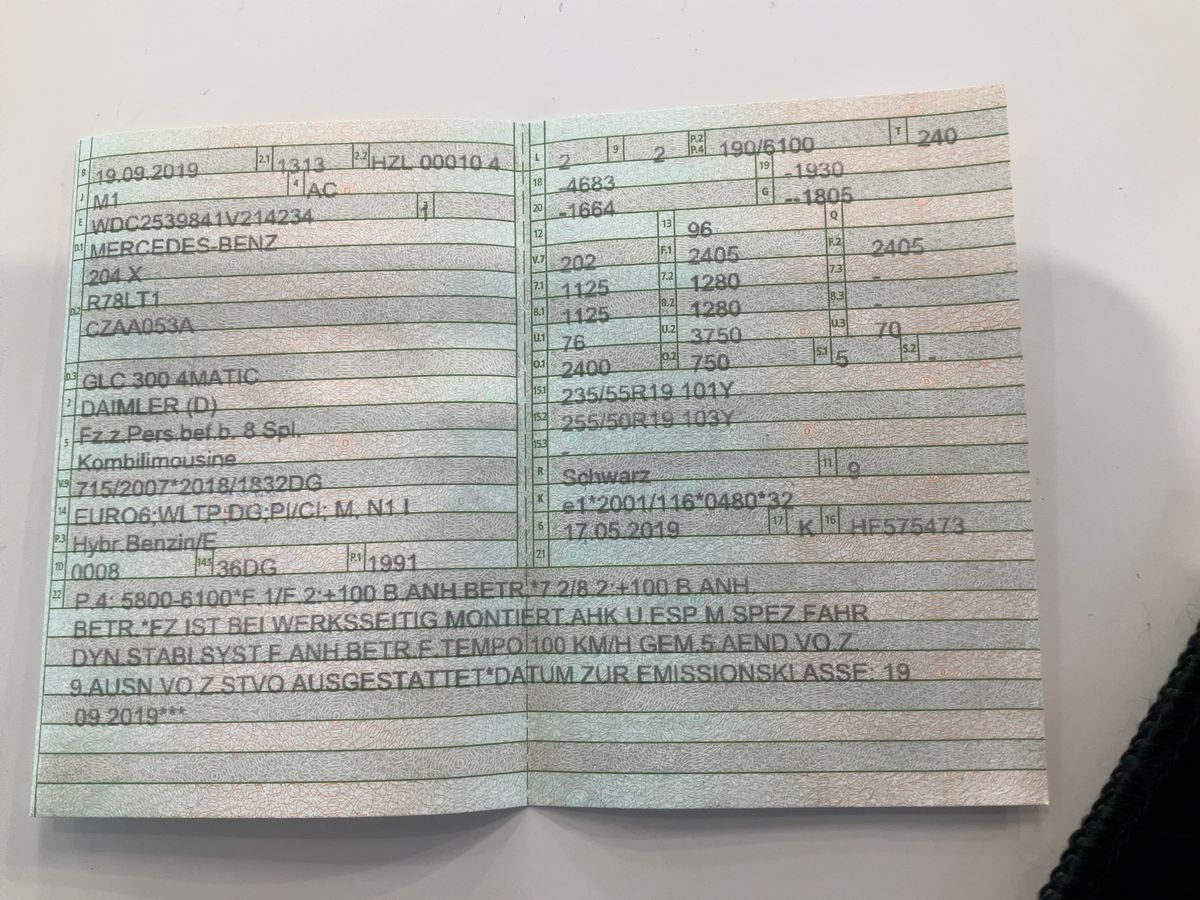 B 19.09.2019 2.1 1313 2.2 HZL 00010 4
J M1 4 AC
E WDC2539841V214234 3 1
D.1 MERCEDES-BENZ
204 X
D.2 R78LT1
CZAA053A
D.3 GLC 300 4MATIC
2 DAIMLER (D)
5 Fz.z.Pers.bef.b. 8 Spl.
Kombilimousine
V.9 715/2007*2018/1832DG
14 EURO6;WLTP;DG;PI/CI; M, N1 I
P.3 Hybr.Benzin/E
10 0008 14.1 36DG P.1 1991
L 2 9 2 P.2 P.4 190/6100 T 240
18 -4683 19 -1930
20 -1664 G --1805
12 13 96 Q
V.7 202 F.1 2405 F.2 2405
7.1 1125 7.2 1280 7.3 -
8.1 1125 8.2 1280 8.3 -
U.1 76 U.2 3750 U.3 70
O.1 2400 O.2 750 S.1 5 S.2 -
15.1 235/55R19 101Y
15.2 255/50R19 103Y
15.3 -
R Schwarz 11 9
K e1*2001/116*0480*32
6 17.05.2019 17 K 16 HF575473
21
22 P.4: 5800-6100*F.1/F.2:+100 B.ANH.BETR.*7.2/8.2:+100 B.ANH.
BETR.*FZ IST BEI WERKSSEITIG MONTIERT.AHK U.ESP M.SPEZ.FAHR
DYN.STABI.SYST.F.ANH.BETR.F.TEMPO 100 KM/H GEM.5.AEND.VO.Z.
9.AUSN.VO.Z.STVO AUSGESTATTET*DATUM ZUR EMISSIONSKLASSE: 19
.09.2019***